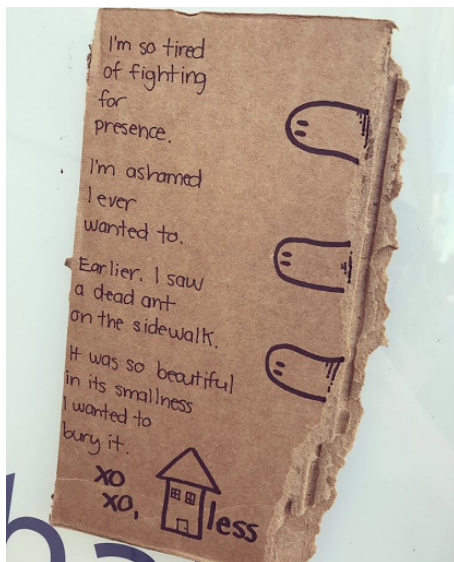 I'm so tired
of fighting
for
presence.
I'm ashamed
I ever
wanted to.
Earlier. I saw
a dead ant
on the sidewalk.
It was so beautiful
in its smallness
I wanted to
bury it.
xo
xo,
less